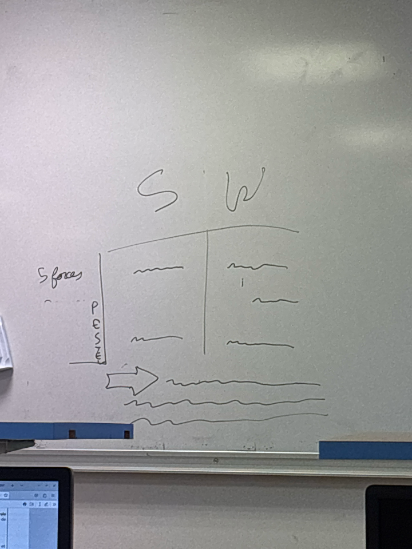 S W
5 forces
P
E
S